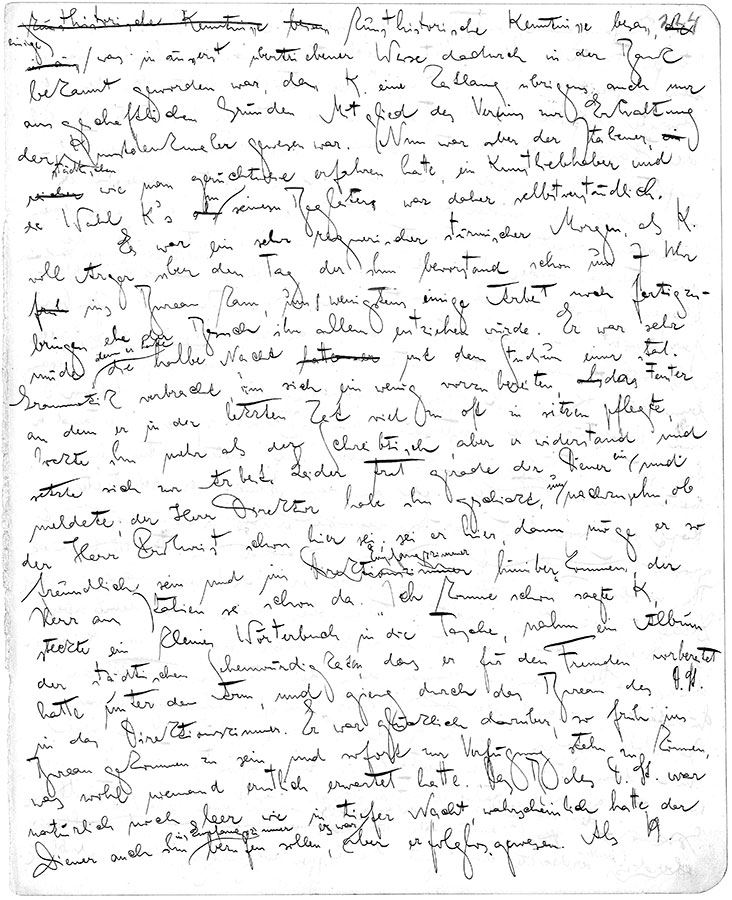 kunsthistorische Kenntnisse besass kunsthistorische Kenntnisse besass, 
einige
was in äusserst übertriebener Weise dadurch in der Bank
bekannt geworden war, dass K. eine Zeitlang übrigens auch nur
aus geschäftlichen Gründen Mitglied des Vereins zur Erhaltung
der Kunstdenkmäler gewesen war. Nun war aber der Italiener,
städtischen
wie man gerüchtweise erfahren hatte, ein Kunstliebhaber und
die Wahl K's zu seinem Begleiter war daher selbstverständlich.
Es war ein sehr regnerischer stürmischer Morgen, als K.
voll Ärger über den Tag der ihm bevorstand schon um 7 Uhr
früh ins Bureau kam, um wenigstens einige Arbeit noch fertigzu-
bringen ehe der Besuch ihn allem entziehen würde. Er war sehr
müde denn er hatte die halbe Nacht mit dem Studium einer ital.
Grammatik verbracht um sich ein wenig vorzubereiten, das Fenster
an dem er in der letzten Zeit viel zu oft zu sitzen pflegte,
lockte ihn mehr als der Schreibtisch, aber er widerstand und
setzte sich zur Arbeit. Leider trat gerade der Diener ein und
meldete, der Herr Direktor habe ihn geschickt, um nachzusehn, ob
der Herr Prokurist schon hier sei; sei er hier, dann möge er so
Empfangszimmer
freundlich sein und ins Direktionszimmer hinüberkommen, der
Herr aus Italien sei schon da. "Ich komme schon" sagte K.,
steckte ein kleines Wörterbuch in die Tasche, nahm ein Album
der städtischen Sehenswürdigkeiten, das er für den Fremden vorbereitet
hatte unter den Arm, und gieng durch das Bureau des D.St.
in das Direktionszimmer. Er war glücklich darüber, so früh ins
Bureau gekommen zu sein und sofort zur Verfügung stehn zu können,
was wohl niemand ernstlich erwartet hatte. Das B. des D.St. war
natürlich noch leer wie in tiefer Nacht, wahrscheinlich hatte der
ins Empfangszimmer es war
Diener auch ihn berufen sollen, aber erfolglos gewesen. Als K.